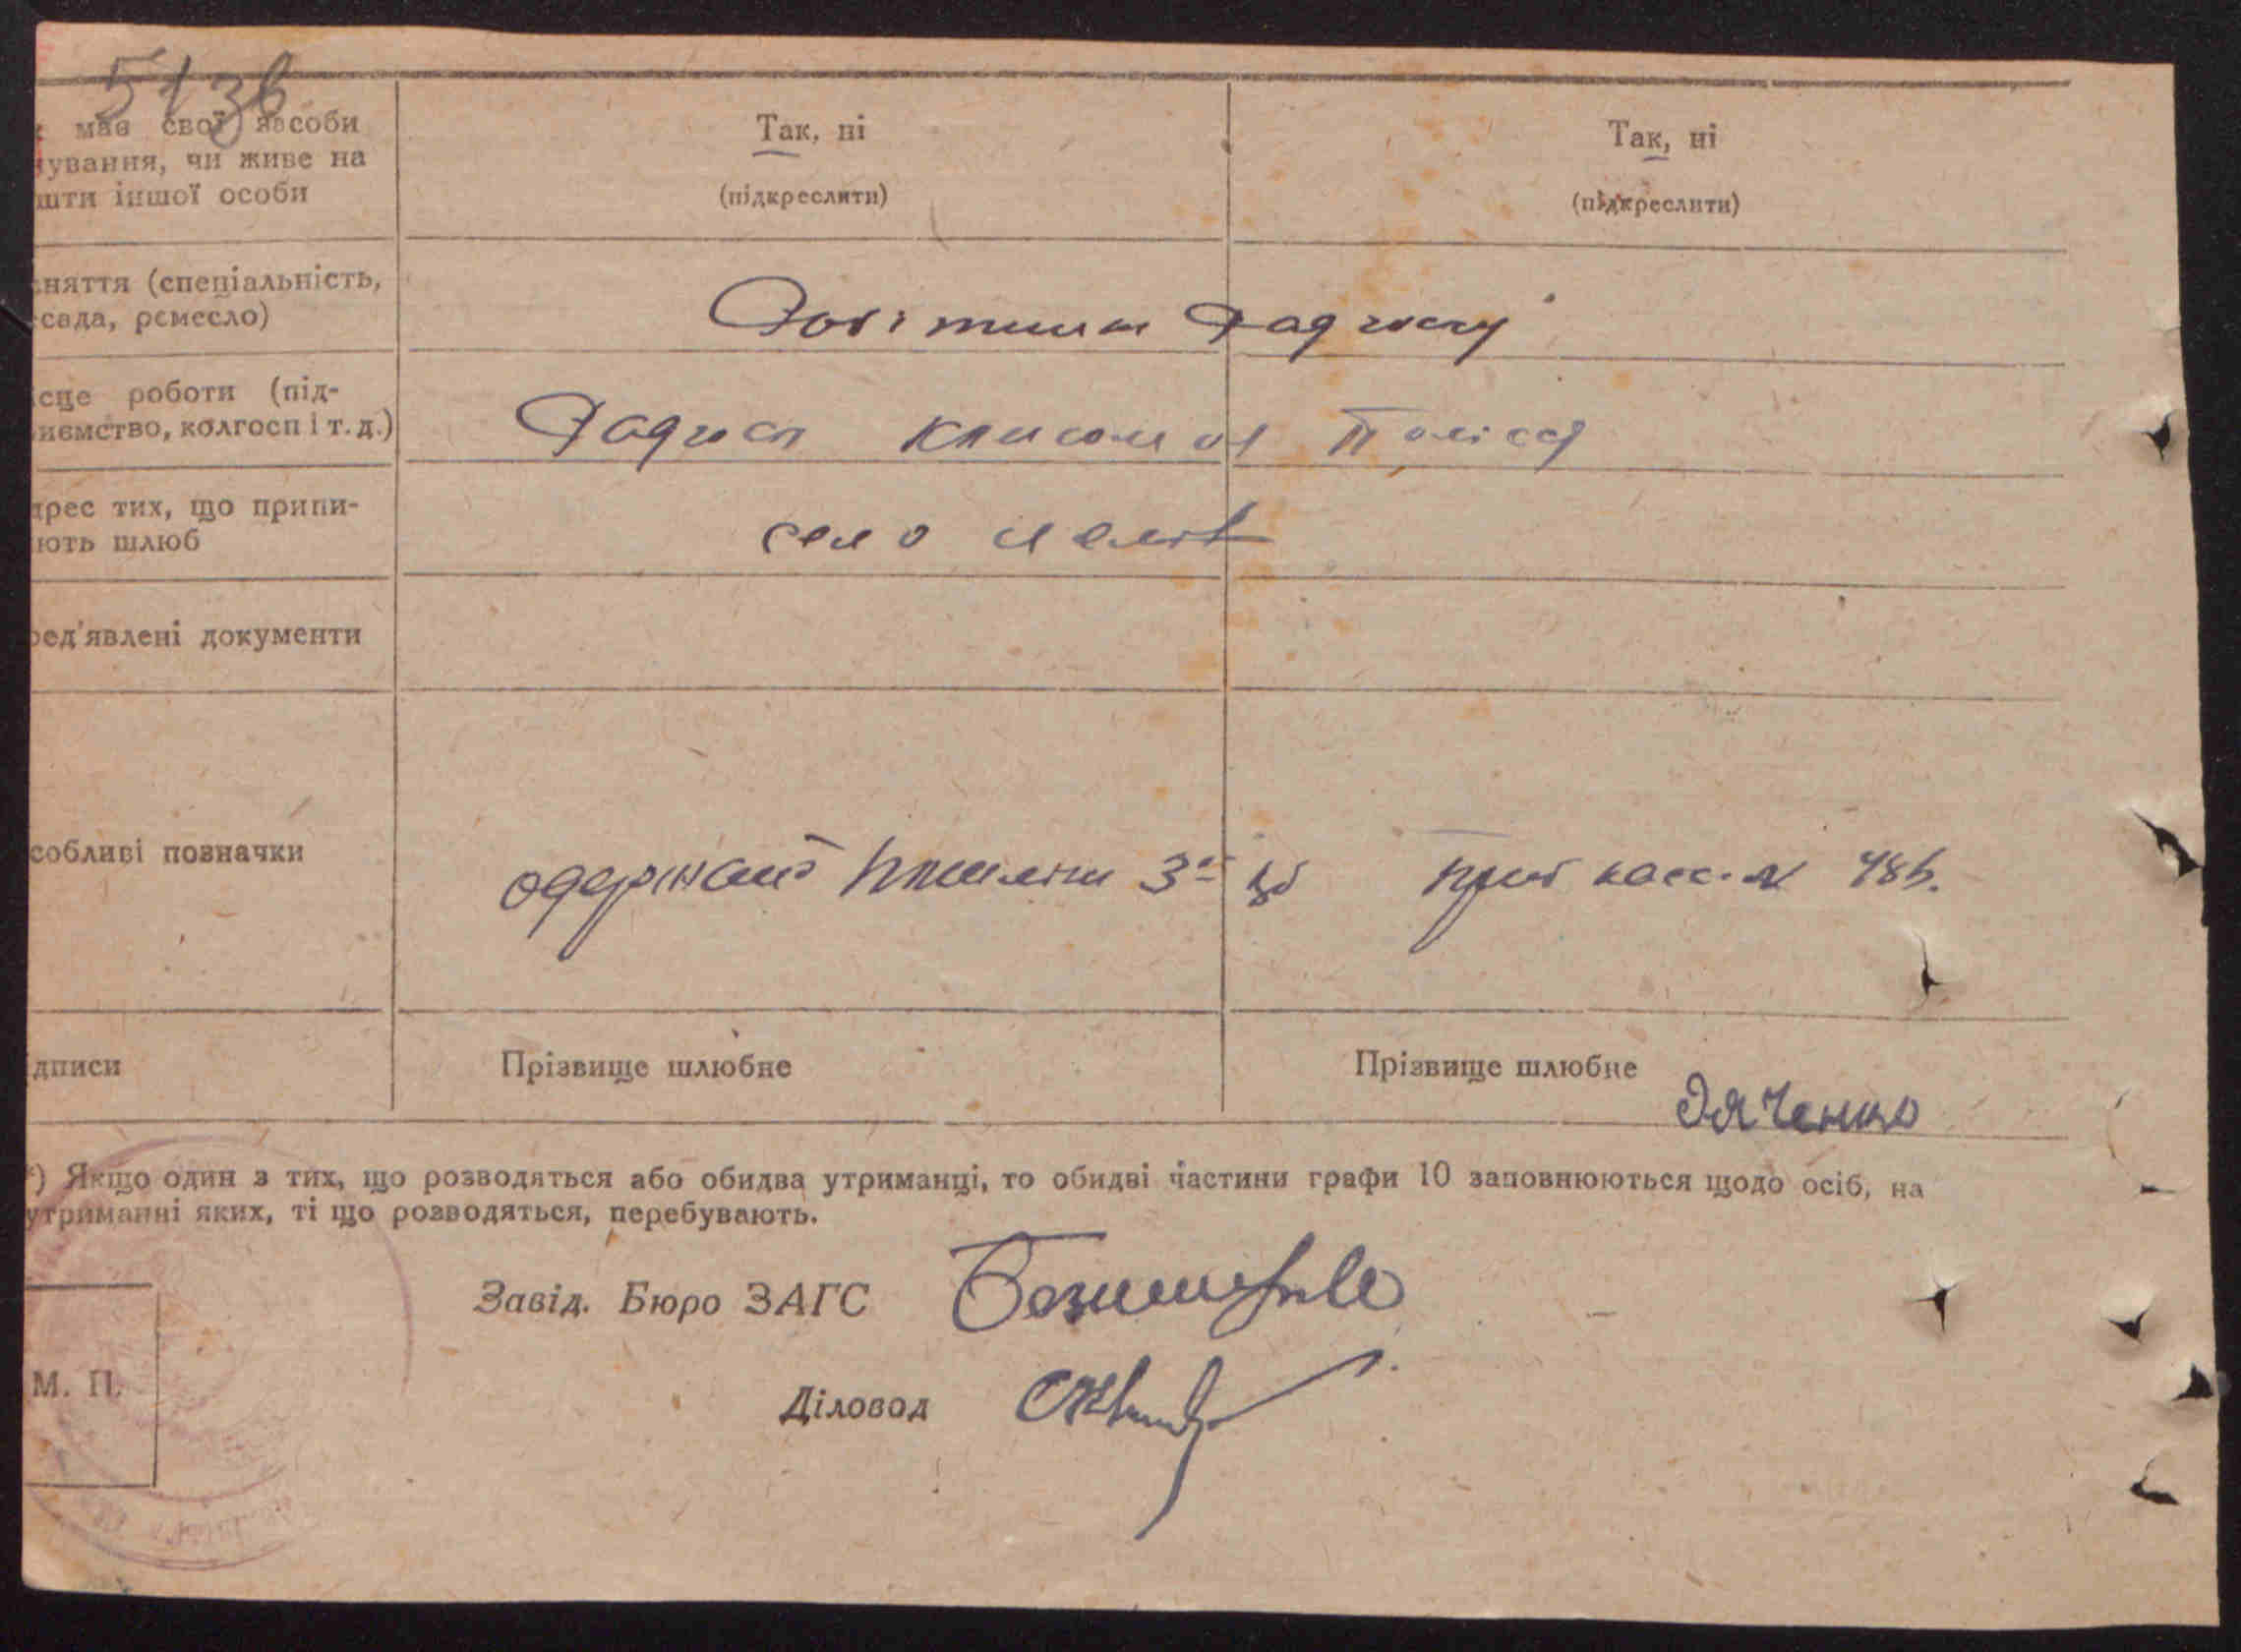 5136
має свої засоби
чування, чи живе на
шти іншої особи
Так, ні
(підкреслити)
Так, ні
(підкреслити)
няття (спеціальність,
сада, ремесло)
Робітники Радгоспу
ісце роботи (під-
иємство, колгосп і т. д.)
Радгосп Комсомол Полісся
дрес тих, що припи-
ють шлюб
село
ред'явлені документи
собливі позначки
3
48
дписи
Прізвище шлюбне
Прізвище шлюбне
Дяченко
*) Якщо один з тих, що розводяться або обидва утриманці, то обидві частини графи 10 заповнюються щодо осіб, на
утриманні яких, ті що розводяться, перебувають.
Завід. Бюро ЗАГС
М. П.
Діловод